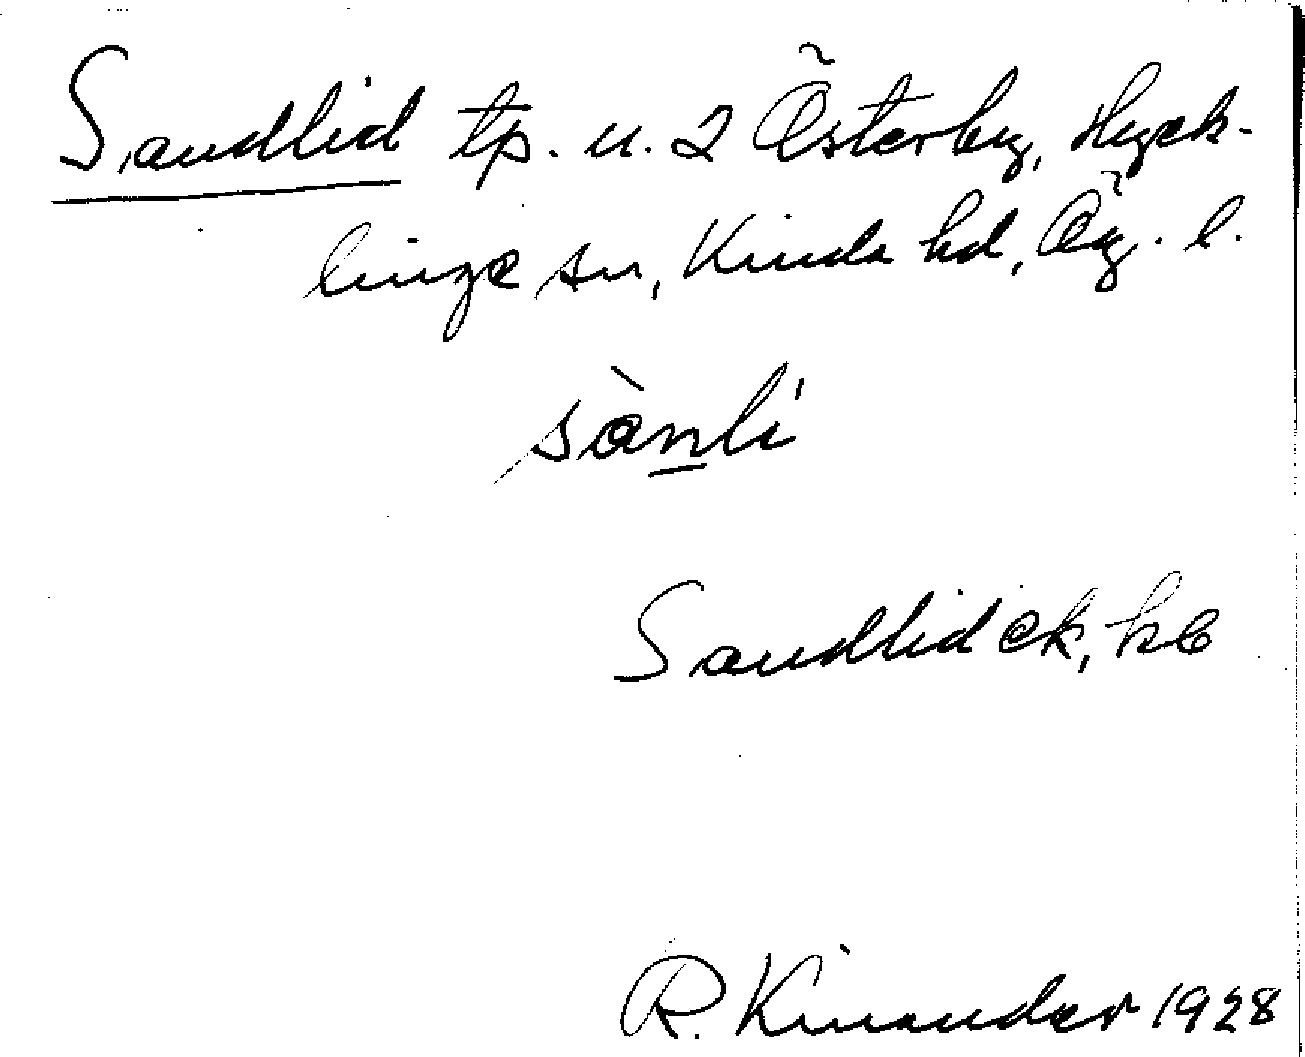 Sandlid tp. u. 2 Österby, Hyck-
linge sn, Kinda hd, Ög. l.
sànli
Sandlid ek, kb
R. Kinander 1928